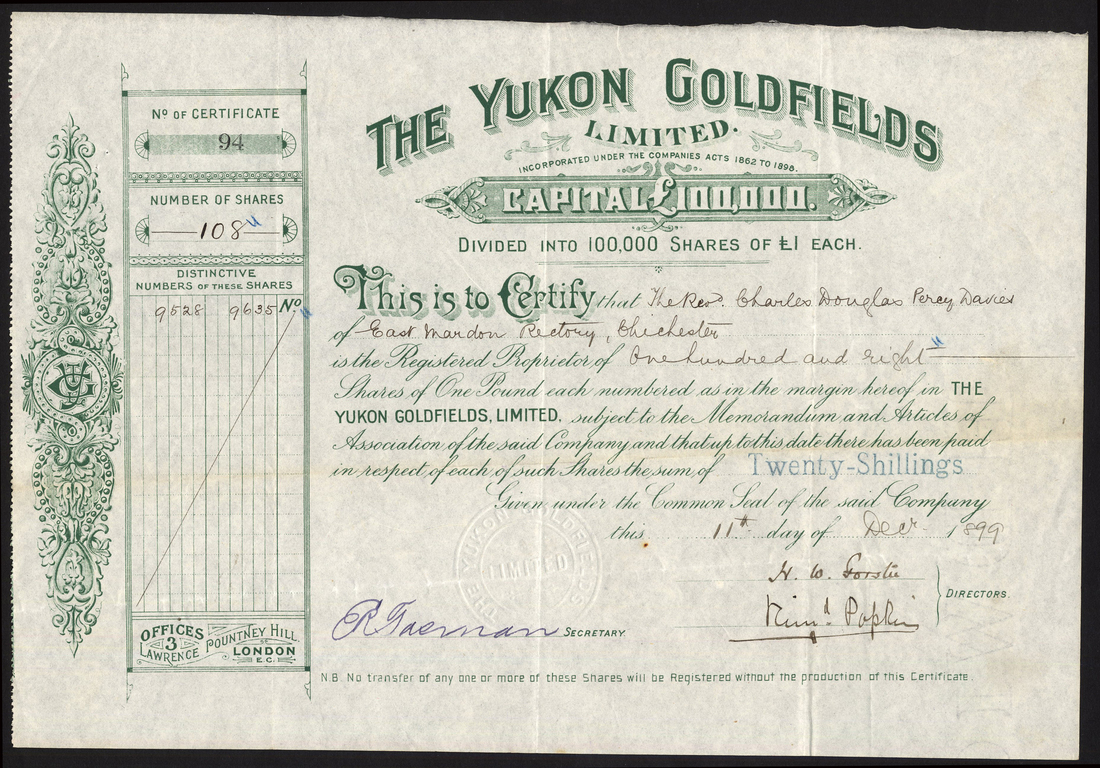 THE YUKON GOLDFIELDS
LIMITED.
INCORPORATED UNDER THE COMPANIES ACTS 1862 TO 1898.
CAPITAL £100,000.
DIVIDED INTO 100,000 SHARES OF £1 EACH.
Nº OF CERTIFICATE
94
NUMBER OF SHARES
108
DISTINCTIVE
NUMBERS OF THESE SHARES
9528 9635 Nº
OFFICES
3
LAWRENCE POUNTNEY HILL
LONDON
E.C.
This is to Certify that The Rev. Charles Douglas Percy Davies
of East Mardon Rectory, Chichester
is the Registered Proprietor of One hundred and eight
Shares of One Pound each numbered as in the margin hereof in THE
YUKON GOLDFIELDS, LIMITED. subject to the Memorandum and Articles of
Association of the said Company and that up to this date there has been paid
in respect of each of such Shares the sum of Twenty-Shillings
Given under the Common Seal of the said Company
this 11th day of Decr. 1899
THE YUKON GOLDFIELDS
LIMITED
H. W. Forster
Popkin
DIRECTORS.
SECRETARY.
N.B. No transfer of any one or more of these Shares will be Registered without the production of this Certificate.